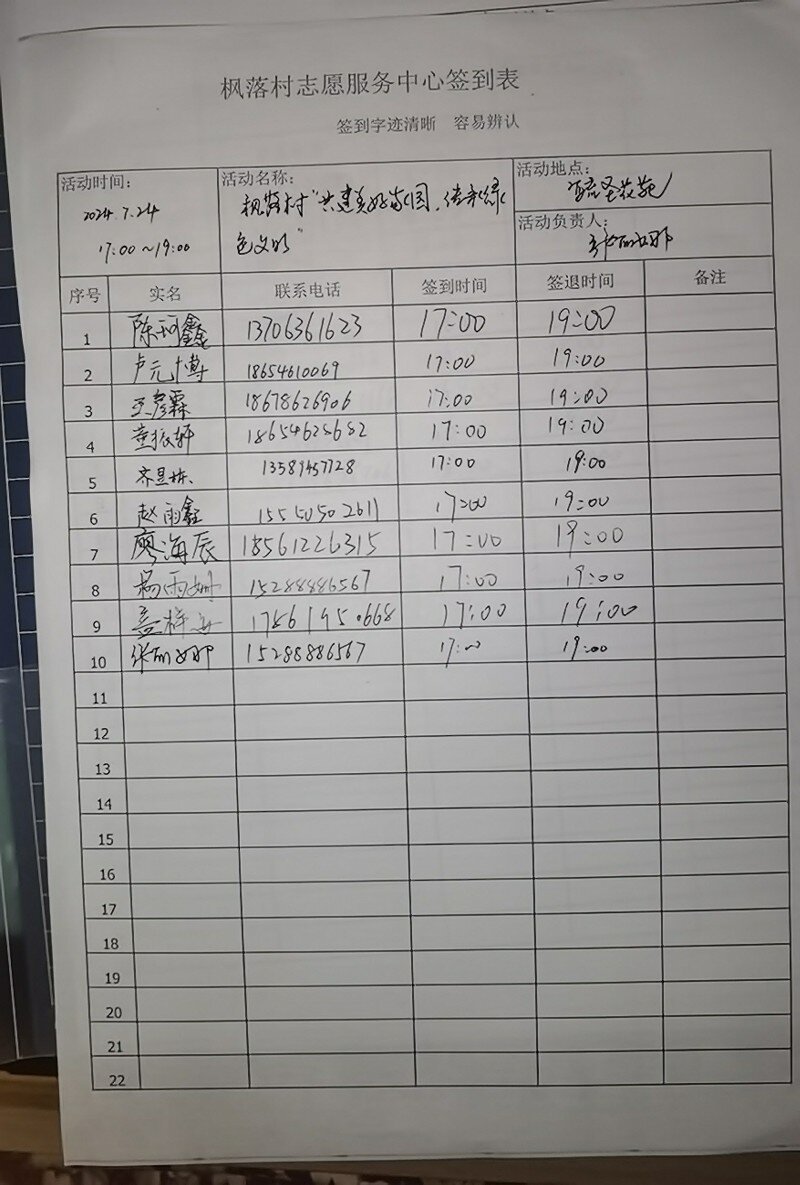 枫落村志愿服务中心签到表
签到字迹清晰 容易辨认
活动时间: 活动名称: 活动地点:
2024.7.24 枫落村"共建美好家园,传承绿
17:00~19:00 色文明" 圣花苑
活动负责人:
张丽娜
序号 实名 联系电话 签到时间 签退时间 备注
1 陈珂鑫 13706361623 17:00 19:00
2 卢元博 18654610069 17:00 19:00
3 王彦霖 18678626906 17:00 19:00
4 董振轩 18654628682 17:00 19:00
5 齐昱栋 13589457728 17:00 19:00
6 赵雨鑫 15550502611 17:00 19:00
7 廖海辰 18561226315 17:00 19:00
8 杨雨姗 15288886567 17:00 19:00
9 17561950668 17:00 19:00
10 张丽娜 15288886567 17:00 19:00
11
12
13
14
15
16
17
18
19
20
21
22